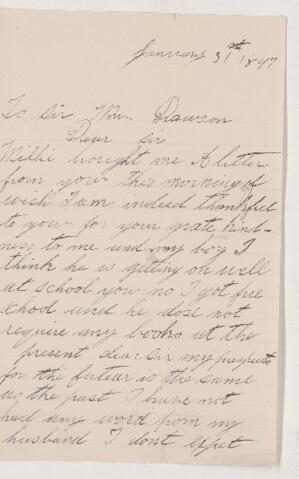 January 31st 1897
To Sir Wm Dawson
Dear Sir
Millie brought me A letter
from you this morning of
wich I am indeed thankful
to you for your grate kind-
ness to me und my boy I
think he is getting on well
at School you no I got free
Schod und he dose not
require any books at the
present dear Sir my prospects
for the futear is the same
as the past I have not
had any word from my
husband I dont expect